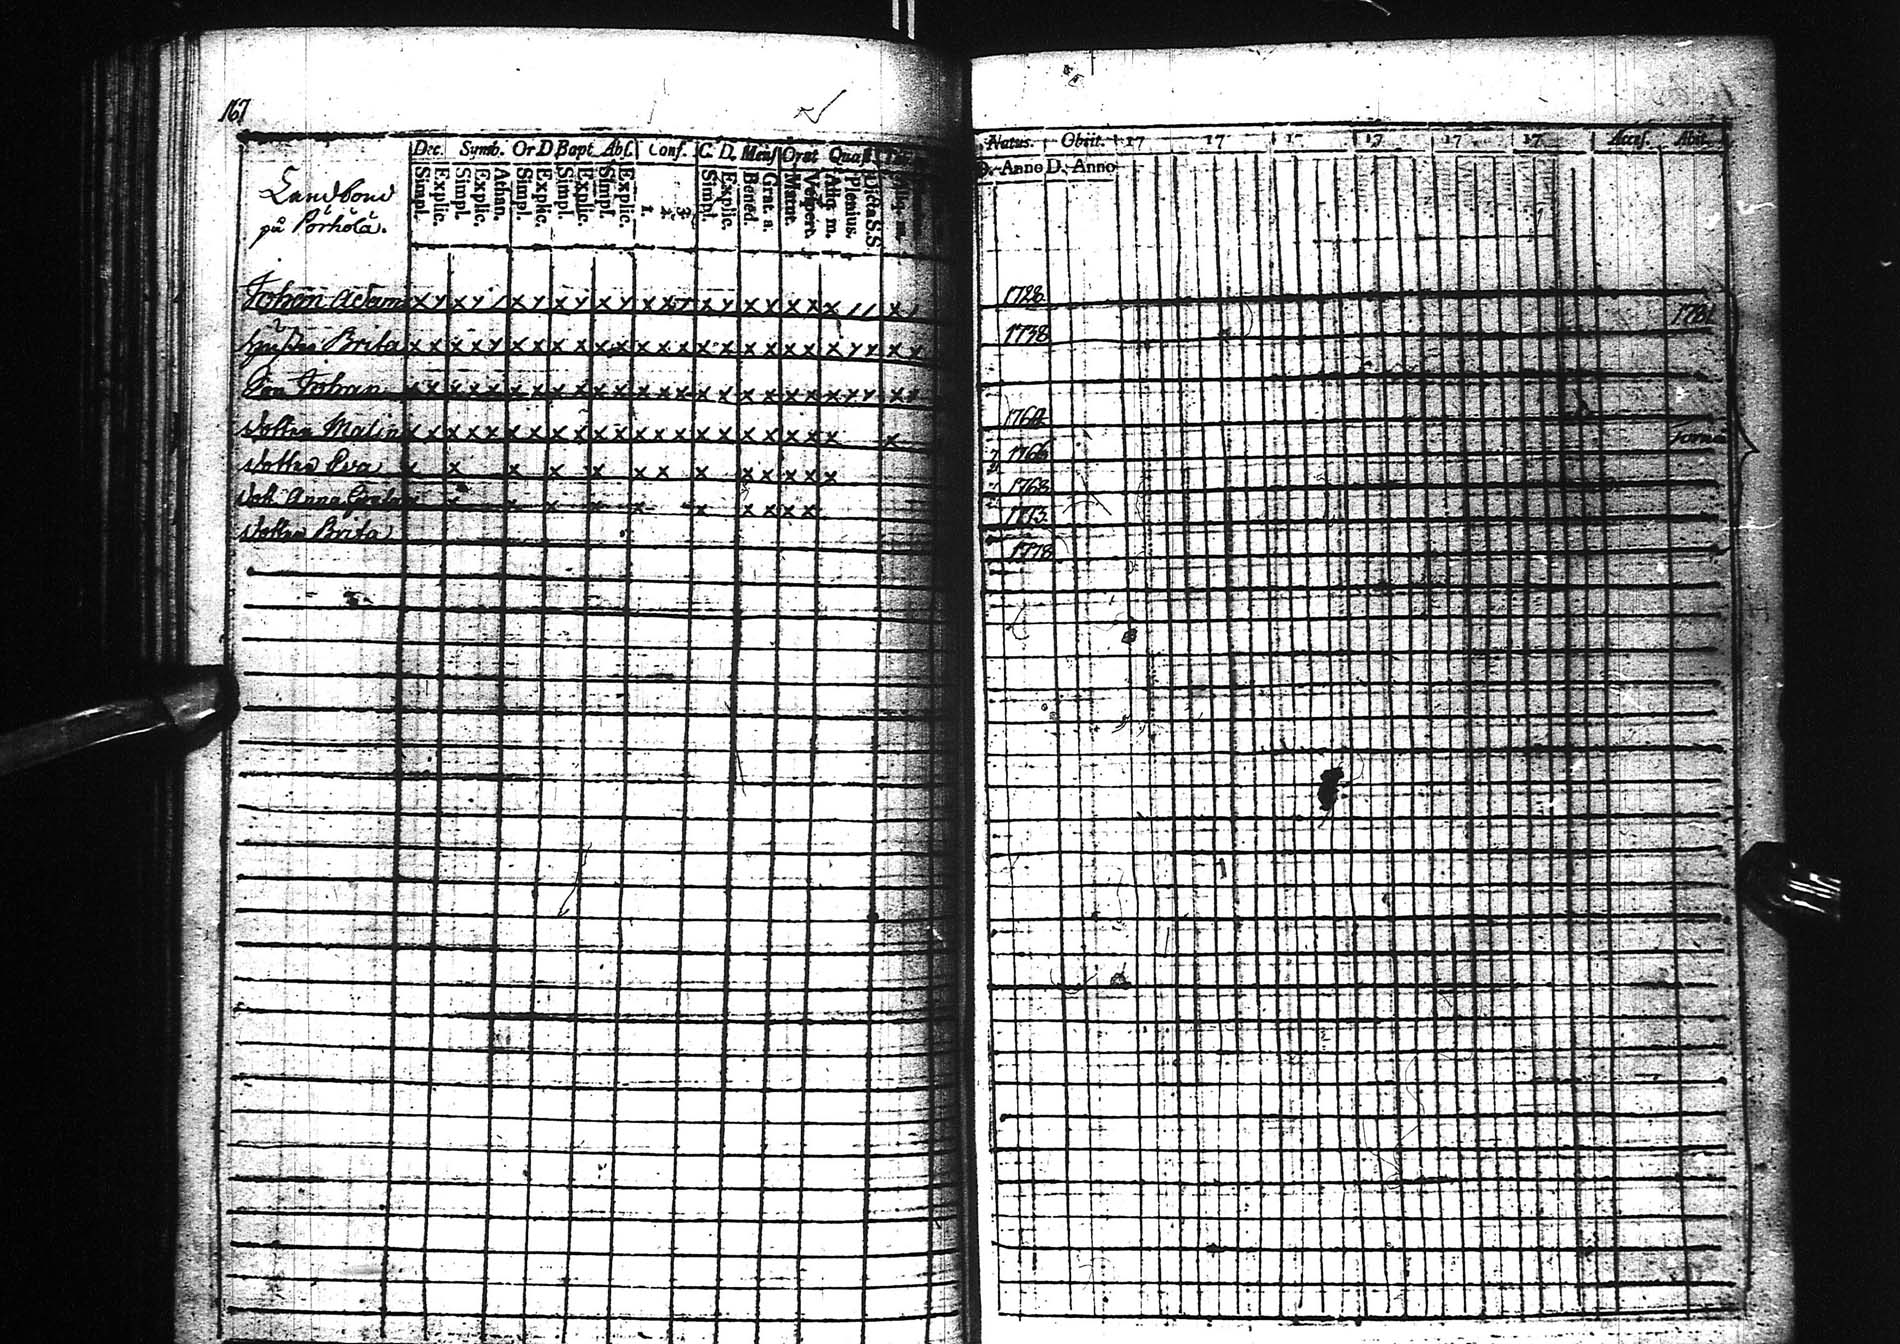 167
Dec. Symb. Or D Bapt. Abs. Conf. C. D. Mens Orat Quæst
Simpl. Explic. Simpl. Explic. Athan. Simpl. Explic. Simpl. Explic. Simpl. Explic. 1. 2. 3. Simpl. Explic. Bened. Grat. a. Matut. Vespert. Aliq. m. Plenius. Dicta S.S
Landbond
på Pörhölä.
Johan Adam
Hustru Brita
Son Johan
dottren Malin
dottren Eva
dott. Anna
dottren Brita
Natus. Obiit. 17 17 17 17 17 17 Access. Abit.
D. Anno D. Anno
1728
1781
1738
1764
1766
1768
1773
1778